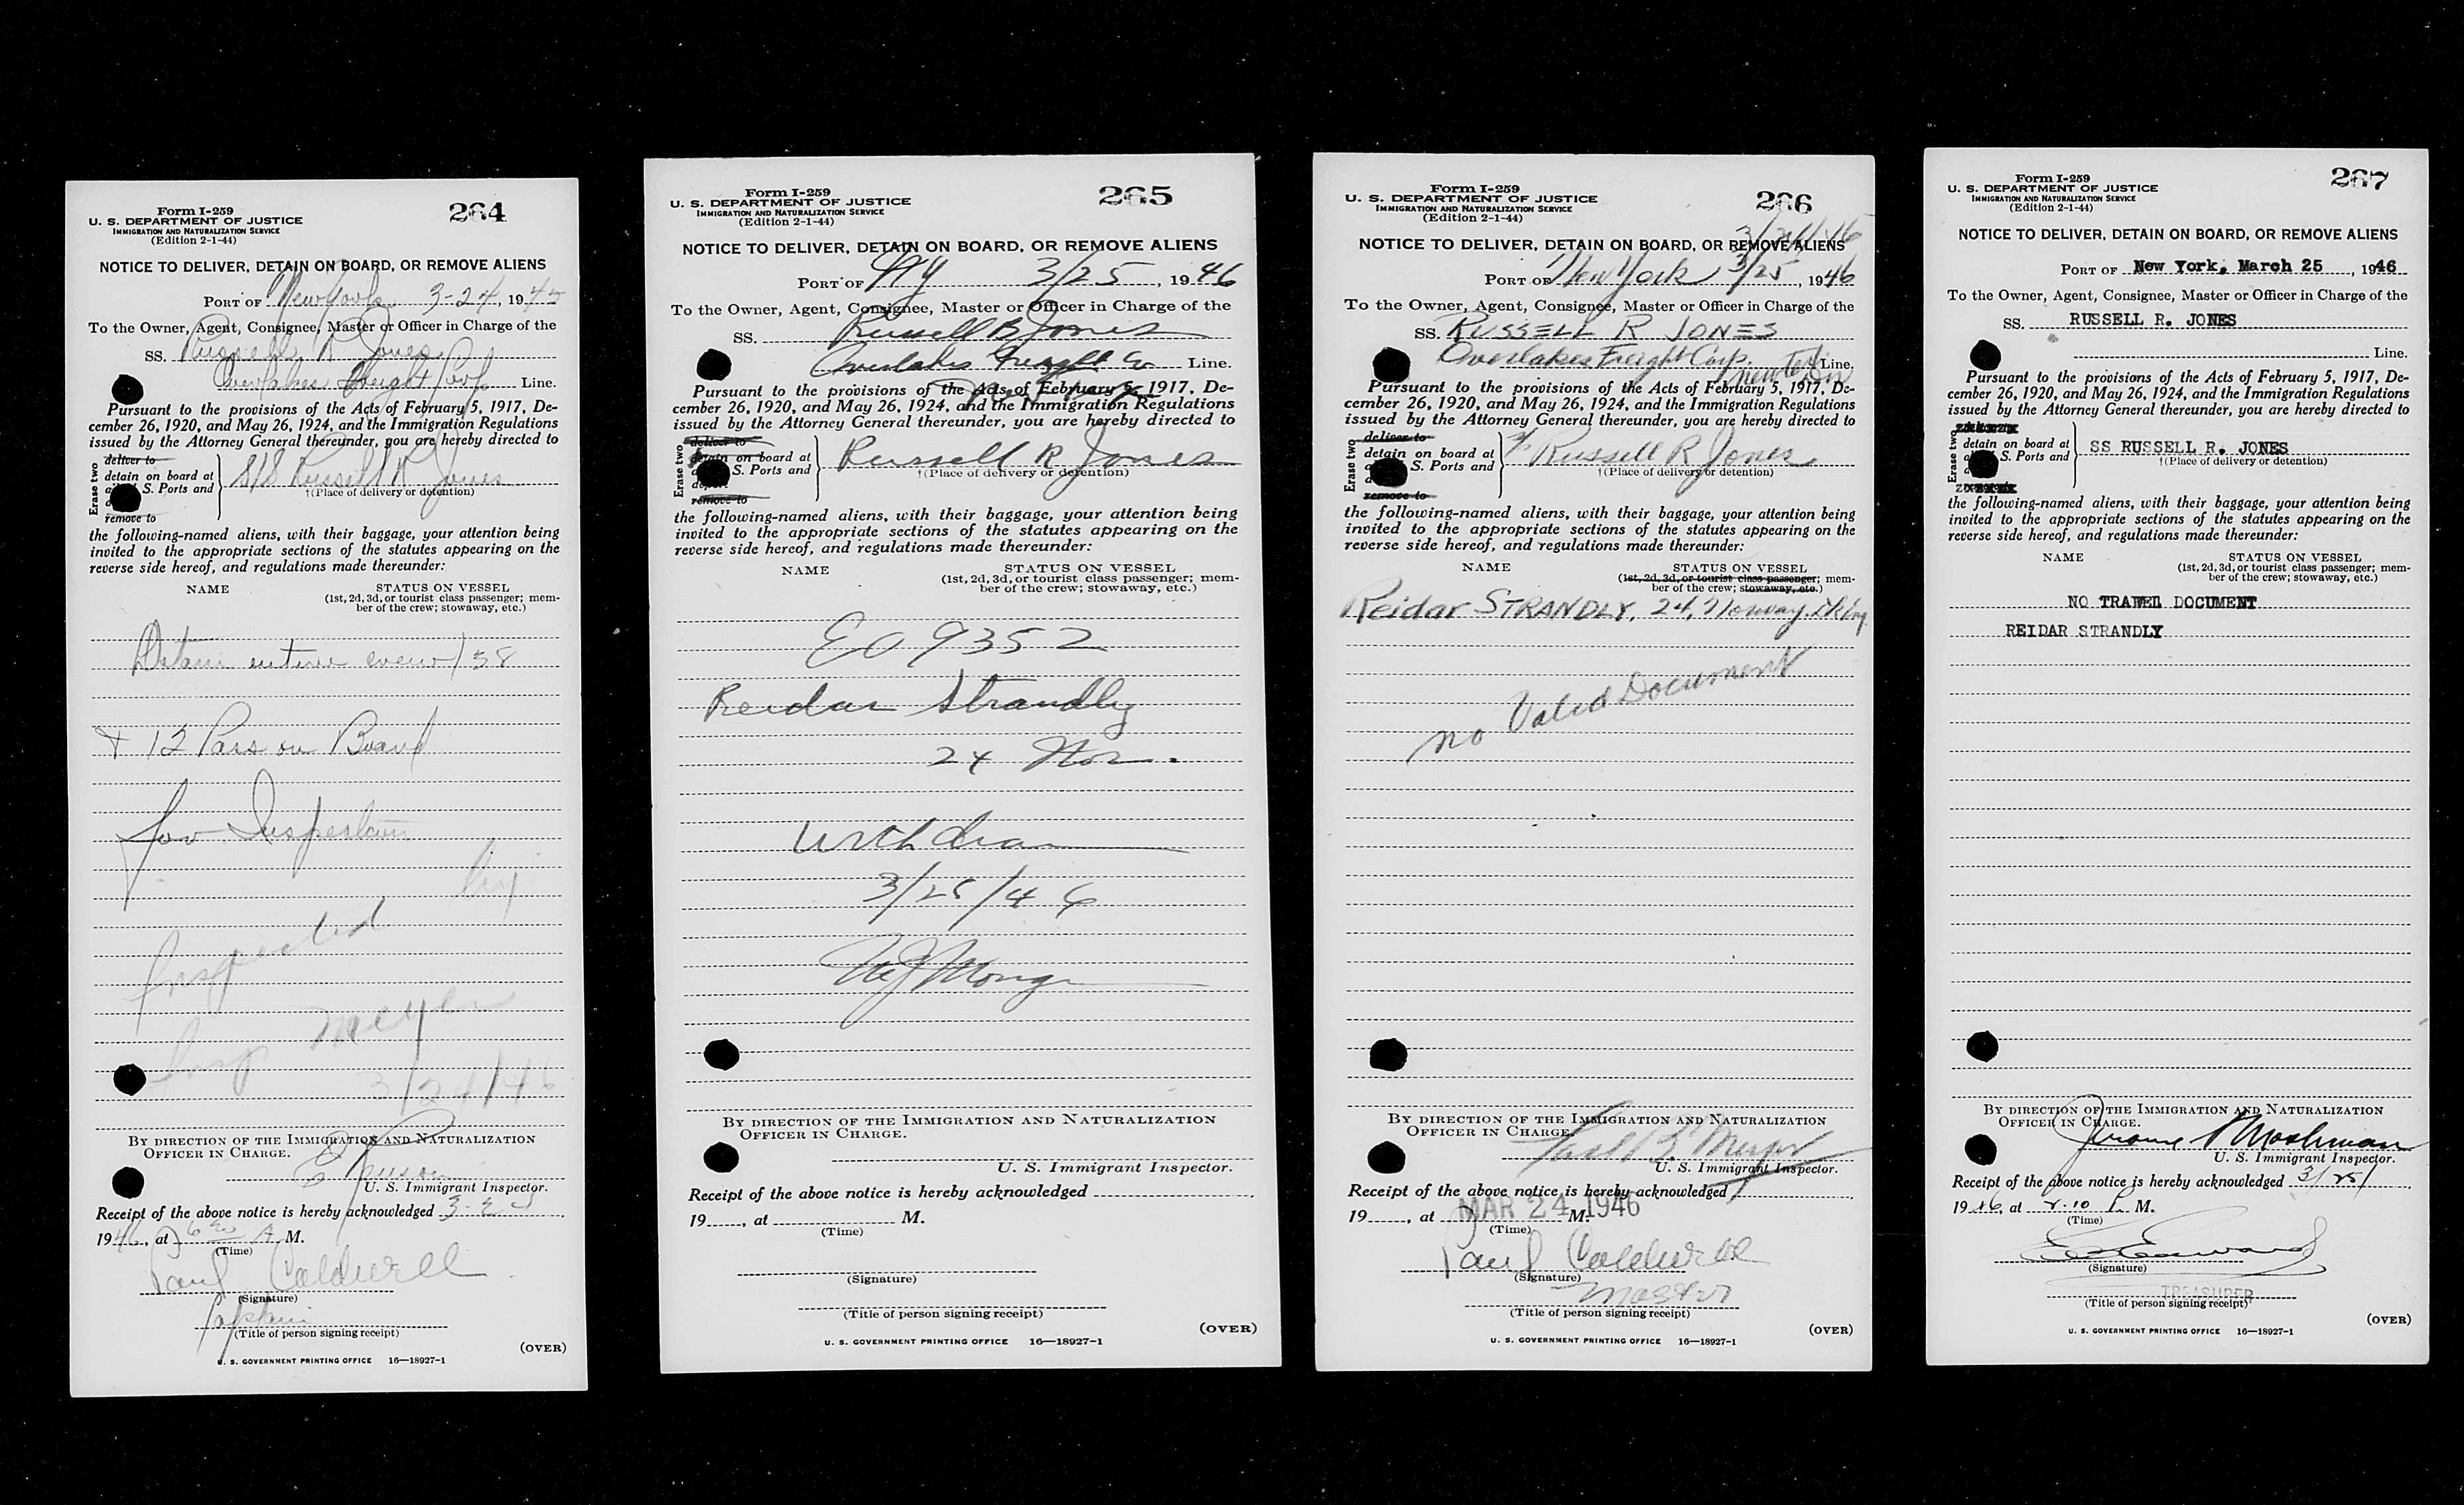 Form I-259
U. S. DEPARTMENT OF JUSTICE
IMMIGRATION AND NATURALIZATION SERVICE
(Edition 2-1-44)
264
NOTICE TO DELIVER, DETAIN ON BOARD, OR REMOVE ALIENS
PORT OF New York 3-24, 19
To the Owner, Agent, Consignee, Master or Officer in Charge of the
SS. Russell R Jones
Overlakes Freight Corp Line.
Pursuant to the provisions of the Acts of February 5, 1917, De-
cember 26, 1920, and May 26, 1924, and the Immigration Regulations
issued by the Attorney General thereunder, you are hereby directed to
Erase two
deliver to
detain on board at
S. Ports and
remove to
S/S Russell R Jones
†(Place of delivery or detention)
the following-named aliens, with their baggage, your attention being
invited to the appropriate sections of the statutes appearing on the
reverse side hereof, and regulations made thereunder:
NAME STATUS ON VESSEL
(1st, 2d, 3d, or tourist class passenger; mem-
ber of the crew; stowaway, etc.)
Detain entire crew 38
+ 12 Pass on Board
for Inspection
Inspected
Insp Meyer
3/24/46
BY DIRECTION OF THE IMMIGRATION AND NATURALIZATION
OFFICER IN CHARGE.
U. S. Immigrant Inspector.
Receipt of the above notice is hereby acknowledged
1946, at 6 A. M.
(Time)
Paul Caldwell
(Signature)
Captain
(Title of person signing receipt)
(OVER)
U. S. GOVERNMENT PRINTING OFFICE 16—18927-1
Form I-259
U. S. DEPARTMENT OF JUSTICE
IMMIGRATION AND NATURALIZATION SERVICE
(Edition 2-1-44)
265
NOTICE TO DELIVER, DETAIN ON BOARD, OR REMOVE ALIENS
PORT OF NY 3/25, 1946
To the Owner, Agent, Consignee, Master or Officer in Charge of the
SS. Russell B Jones
Overlakes Freight Co Line.
Pursuant to the provisions of the Acts of February 5, 1917, De-
cember 26, 1920, and May 26, 1924, and the Immigration Regulations
issued by the Attorney General thereunder, you are hereby directed to
Erase two
deliver to
detain on board at
S. Ports and
remove to
Russell R Jones
†(Place of delivery or detention)
the following-named aliens, with their baggage, your attention being
invited to the appropriate sections of the statutes appearing on the
reverse side hereof, and regulations made thereunder:
NAME STATUS ON VESSEL
(1st, 2d, 3d, or tourist class passenger; mem-
ber of the crew; stowaway, etc.)
EO 9352
Reidar Strandly
24 Nor.
Withdrawn
3/25/46
BY DIRECTION OF THE IMMIGRATION AND NATURALIZATION
OFFICER IN CHARGE.
U. S. Immigrant Inspector.
Receipt of the above notice is hereby acknowledged
19, at M.
(Time)
(Signature)
(Title of person signing receipt)
(OVER)
U. S. GOVERNMENT PRINTING OFFICE 16—18927-1
Form I-259
U. S. DEPARTMENT OF JUSTICE
IMMIGRATION AND NATURALIZATION SERVICE
(Edition 2-1-44)
266
NOTICE TO DELIVER, DETAIN ON BOARD, OR REMOVE ALIENS
PORT OF New York 3/25, 1946
To the Owner, Agent, Consignee, Master or Officer in Charge of the
SS. RUSSELL R JONES
Overlakes Freight Corp. Line.
Pursuant to the provisions of the Acts of February 5, 1917, De-
cember 26, 1920, and May 26, 1924, and the Immigration Regulations
issued by the Attorney General thereunder, you are hereby directed to
Erase two
deliver to
detain on board at
S. Ports and
remove to
Russell R Jones
†(Place of delivery or detention)
the following-named aliens, with their baggage, your attention being
invited to the appropriate sections of the statutes appearing on the
reverse side hereof, and regulations made thereunder:
NAME STATUS ON VESSEL
(1st, 2d, 3d, or tourist class passenger; mem-
ber of the crew; stowaway, etc.)
Reidar STRANDLY, 24, Norway
no Valid Document
BY DIRECTION OF THE IMMIGRATION AND NATURALIZATION
OFFICER IN CHARGE.
U. S. Immigrant Inspector.
Receipt of the above notice is hereby acknowledged
19, at MAR 24 1946 M.
(Time)
Paul Caldwell
(Signature)
Master
(Title of person signing receipt)
(OVER)
U. S. GOVERNMENT PRINTING OFFICE 16—18927-1
Form I-259
U. S. DEPARTMENT OF JUSTICE
IMMIGRATION AND NATURALIZATION SERVICE
(Edition 2-1-44)
267
NOTICE TO DELIVER, DETAIN ON BOARD, OR REMOVE ALIENS
PORT OF New York, March 25, 1946
To the Owner, Agent, Consignee, Master or Officer in Charge of the
SS. RUSSELL R. JONES
Line.
Pursuant to the provisions of the Acts of February 5, 1917, De-
cember 26, 1920, and May 26, 1924, and the Immigration Regulations
issued by the Attorney General thereunder, you are hereby directed to
Erase two
detain on board at
S. Ports and
SS RUSSELL R. JONES
†(Place of delivery or detention)
the following-named aliens, with their baggage, your attention being
invited to the appropriate sections of the statutes appearing on the
reverse side hereof, and regulations made thereunder:
NAME STATUS ON VESSEL
(1st, 2d, 3d, or tourist class passenger; mem-
ber of the crew; stowaway, etc.)
NO TRAVEL DOCUMENT
REIDAR STRANDLY
BY DIRECTION OF THE IMMIGRATION AND NATURALIZATION
OFFICER IN CHARGE.
U. S. Immigrant Inspector.
Receipt of the above notice is hereby acknowledged 3/25/
1946, at P. M.
(Time)
(Signature)
TREASURER
(Title of person signing receipt)
(OVER)
U. S. GOVERNMENT PRINTING OFFICE 16—18927-1